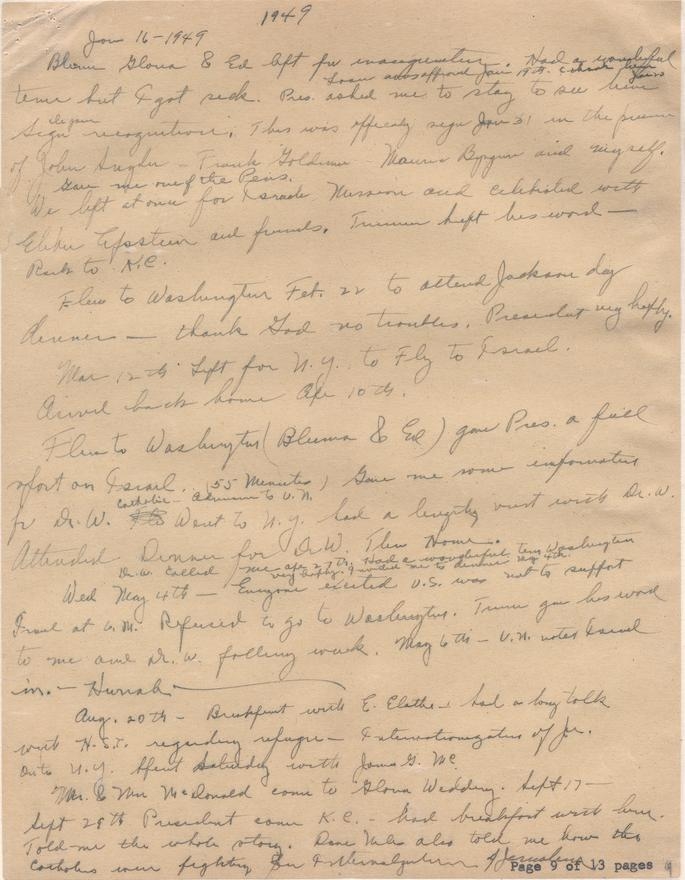 1949
Jan 16-1949
Bluma Gloria & Ed left for inauguration. Had a wonderful
Loan was approved Jan 19th.
time but I got sick. Pres. asked me to stay to see him
sign recognition. This was officially sign Jan 31 in the presence
of John Snyder - Frank Goldman - Maurice and myself.
Gave me one of the Pens.
We left at once for Israeli Mission and celebrated with
Epstein and friends. Truman kept his word -
Back to K.C.
Flew to Washington Feb. 22 to attend Jackson day
dinner - thank God no troubles. President very happy.
Mar 12th Left for N.Y. to Fly to Israel.
Arrived back home Apr 10th.
Flew to Washington (Bluma & Ed) gave Pres. a full
report on Israel. (55 Minutes) Gave me some information
Catholic - Admission to U.N.
for Dr. W. Went to N.Y. had a lengthy visit with Dr. W.
Attended Dinner for Dr. W. Then Home.
Dr. W. called me Apr 27th. Had a wonderful time Washington
very happy. invited me to dinner May 4th.
Wed May 4th - Everyone excited U.S. was not to support
Israel at U.N. Refused to go to Washington. Truman gave his word
to me and Dr. W. following week. May 6th - U.N. votes Israel
in. - Hurrah -
Aug. 20th - Breakfast with E. Elath - had a long talk
with H.S.T. regarding refugee - Internationalization of Jer.
On to N.Y. Spent Saturday with James G. Mc
Mr. & Mrs McDonald come to Gloria Wedding. Sept 17 -
Sept 28th President came K.C. - had breakfast with him.
Told me the whole story. Dave Niles also told me how the
Catholics were fighting for Internalization of Jerusalem
Page 9 of 13 pages